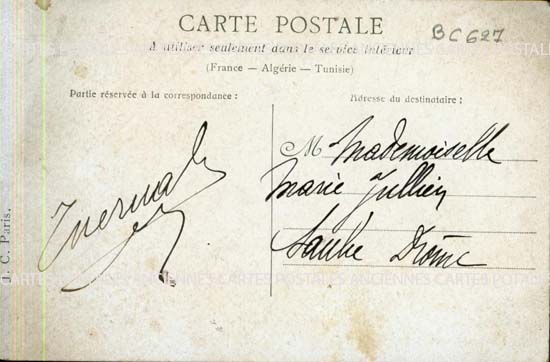 CARTE POSTALE
BC627
A utiliser seulement dans le service intérieur
(France — Algérie — Tunisie)
Partie réservée à la correspondance :
Adresse du destinataire :
M Mademoiselle
Marie Jullien
Drôme
O. C. Paris.
CARTES POSTALES ANCIENNES CARTES POSTALES ANCIENNES CARTES POSTALES